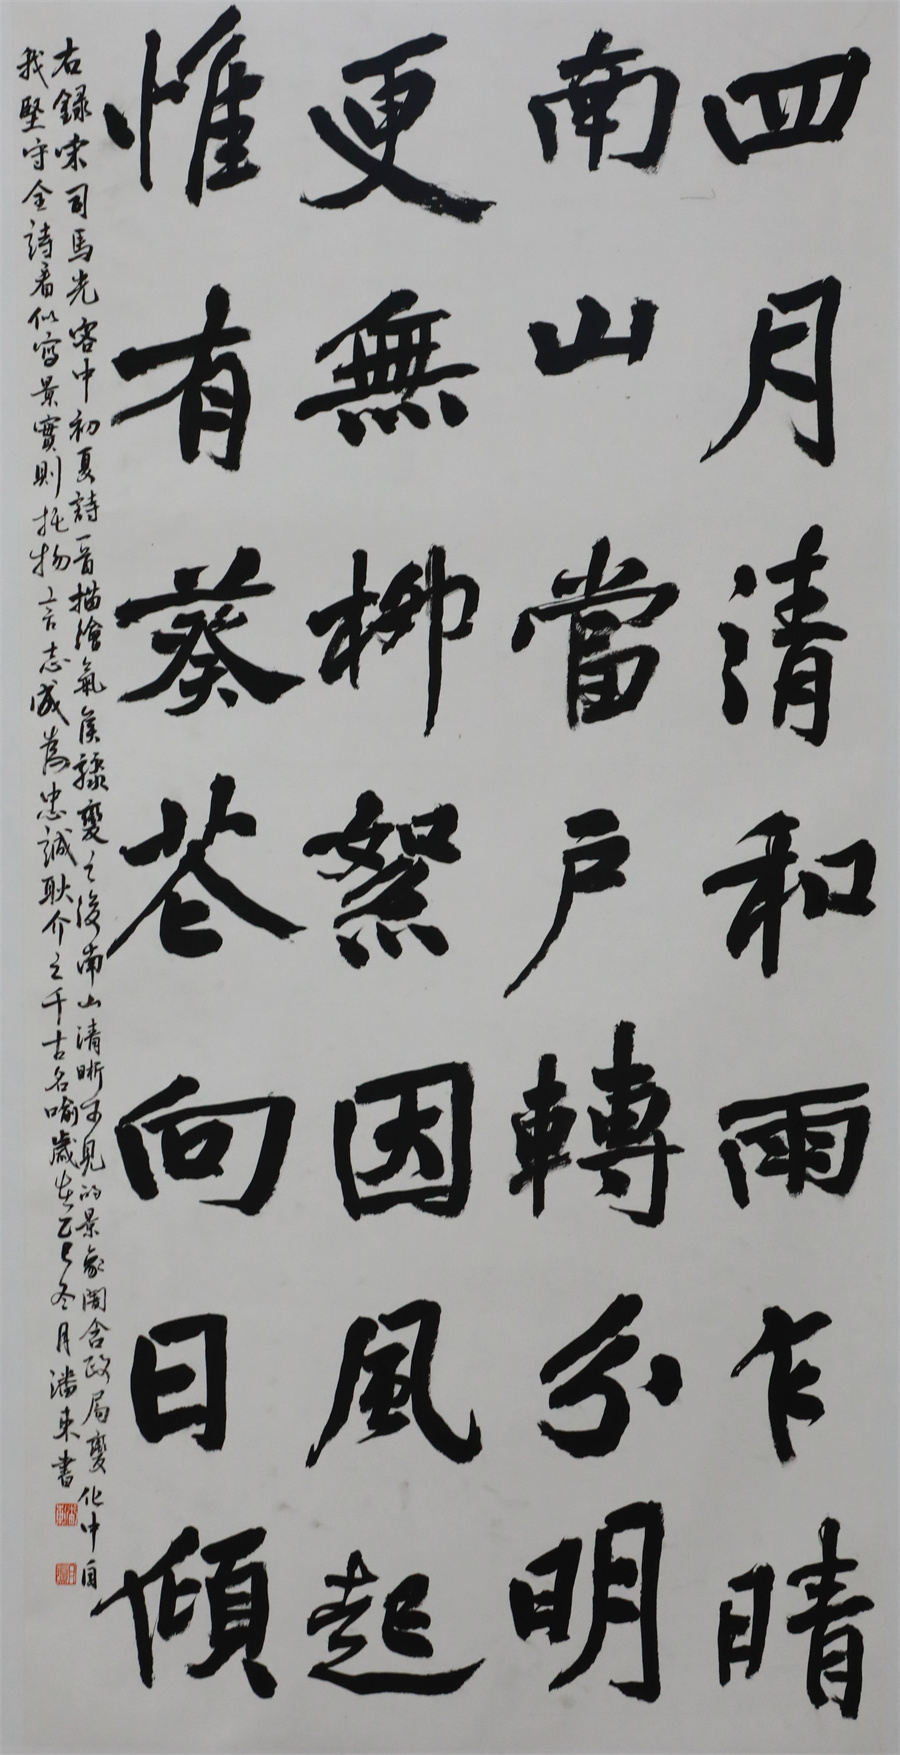 四月清和雨乍晴
南山當戶轉分明
更無柳絮因風起
惟有葵花向日傾
右錄宋司馬光客中初夏詩一首描繪氣候驟變之後南山清晰可見的景象闇含政局變化中自
我堅守全詩看似寫景實則托物言志成為忠誠耿介之千古名喻歲在乙巳冬月潘東書